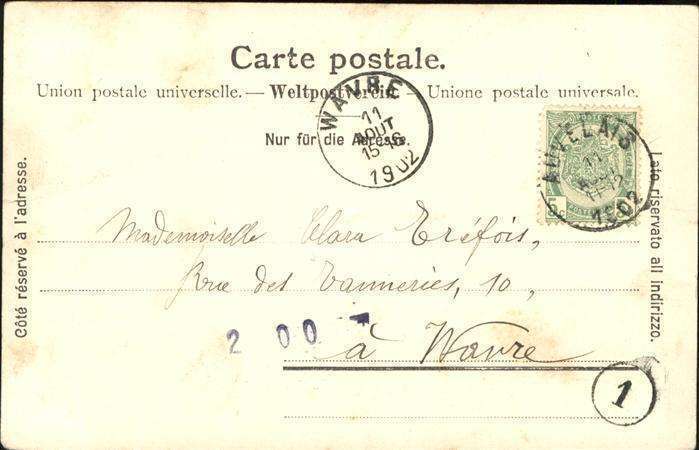 Carte postale.
Union postale universelle. — Weltpostverein. — Unione postale universale.
Nur für die Adresse.
WAVRE
11
AOUT
15-16
1902
AUVELAIS
11
1902
Côté réservé à l'adresse.
Lato riservato all indirizzo.
Mademoiselle Clara Eréfois,
Rue des Tanneries, 10,
à Wavre
2 00
1